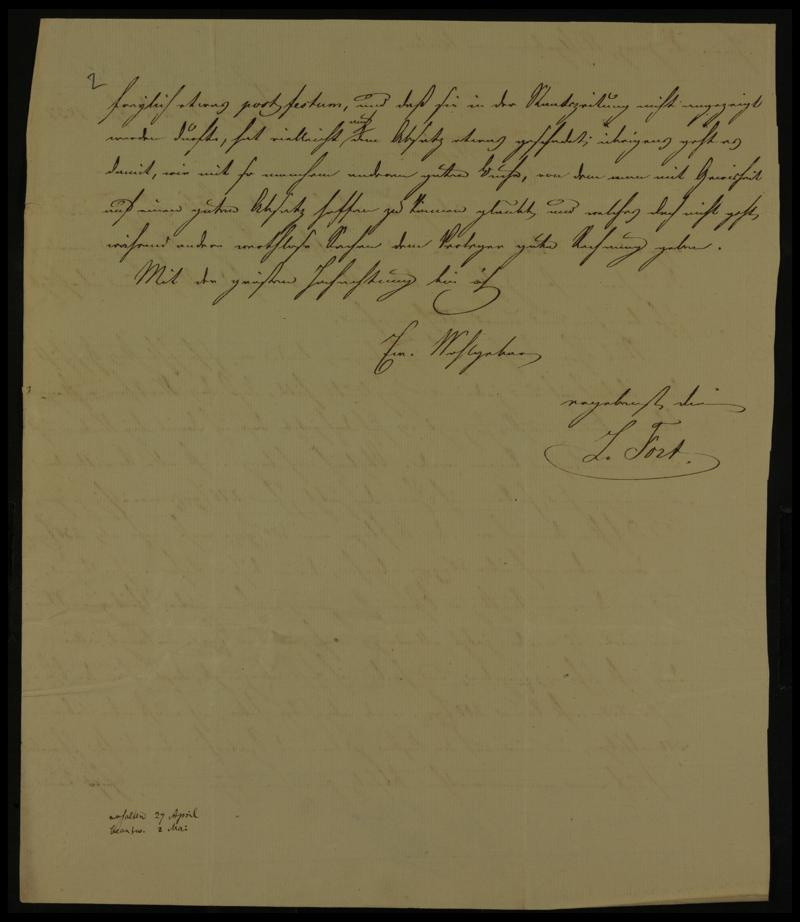 2
freylich etwas post festum, und daß sie in der Staatszeitung nicht angezeigt
werden durfte, hat vielleicht auch dem Absatz etwas geschadet; übrigens geht es
damit, wie mit so manchem anderen guten Buche, von dem man mit Gewisheit
auf einen guten Absatz hoffen zu können glaubt, und welches doch nicht geht,
während andere werthlose Sachen dem Verleger gute Rechnung geben.
Mit der größten Hochachtung bin ich
Ew. Wohlgeboren
ergebenst
L. Fort.
erhalten 27 April
beantw. 2 Mai